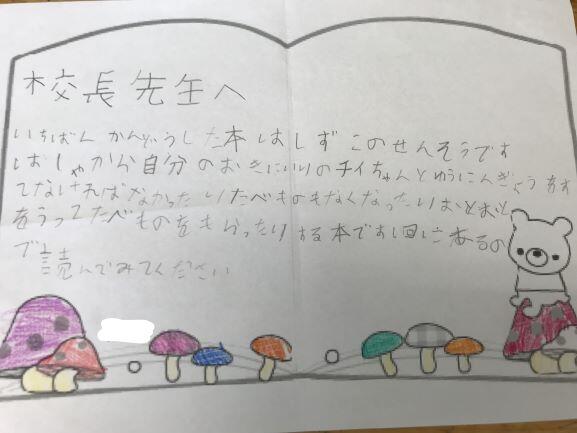 校長先生へ
いちばんかんどうした本はしずこのせんそうです
ばしゃから自分のおきにいりのチイちゃんとゆうにんぎょうをす
てなければなかったりたべものもなくなったりおとおと
をうってたべものをもらったりする本です
で読んでみてください